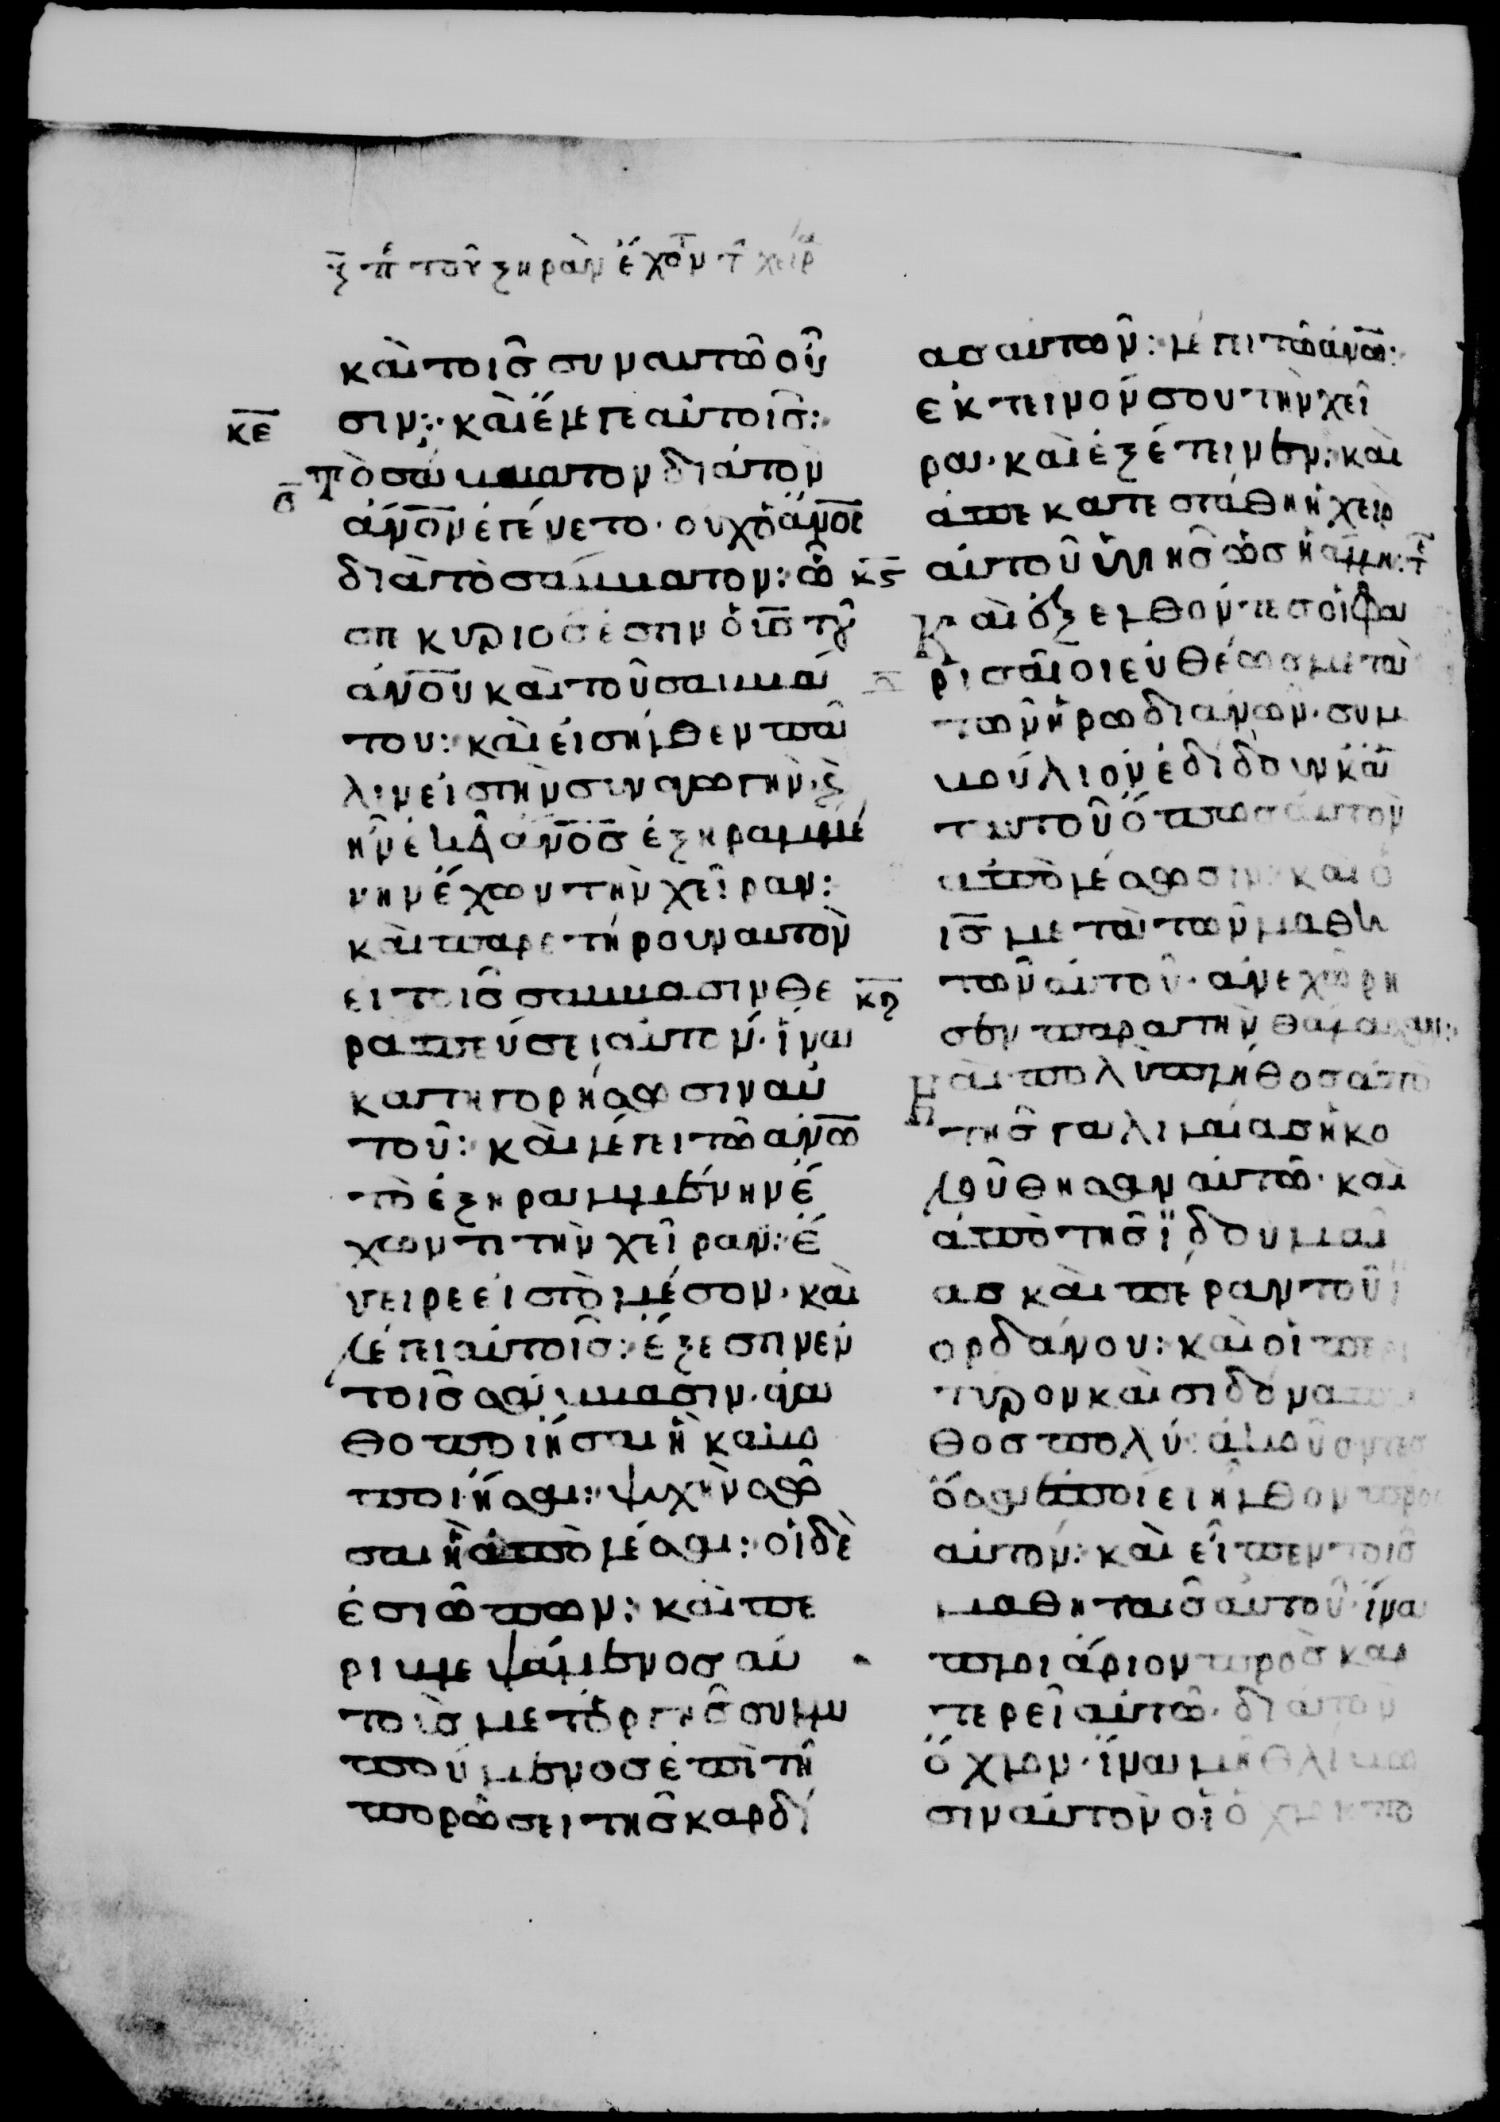 ζ π τοῦ ξηρὰν ἔχοντ τ χεῖρα
καὶ τοῖς συν αυτῶ οὖ
κε
σιν: καὶ ἔλεγε αὐτοῖς:
τὸ σάββατον διὰ τὸν
ἄνον ἐγένετο· ουχ ὁ ἄνος
διὰ τὸ σάββατον: ὥ
κϛ
στε κυριος ἐστιν ὁ ις τοῦ
ἀνου καὶ τοῦ σαββά
του: καὶ εἰσῆλθεν πά
λιν εἰς τὴν συναγωγὴν· κ
ἦν ἐκεῖ ἄνος ἐξηραμμέ
νην ἔχων τὴν χεῖραν:
καὶ παρετήρουν αυτὸν
ει τοῖς σαββασιν θε
ραπεύσει αὐτόν· ἵνα
κατηγορήσωσιν αὐ
τοῦ: καὶ λέγει τῶ ἀνω
τὸ ἐξηραμμένην ἔ
χοντι τὴν χεῖραν: ἔ
γειρε εἰς τὸ μέσον· καὶ
λέγει αὐτοῖς: ἔξεστιν ἐν
τοῖς σάββασιν· ἀγα
θοποιῆσαι ἢ κακο
ποιῆσαι: ψυχὴν σῶ
σαι ἢ ἀπολέσαι: οἱ δὲ
ἐσιώπων: καὶ πε
ριβλεψάμενος αὐ
τοὶς μετ' ὀργῆς συλλυ
πούμενος ἐπὶ τῆ
πορώσει τῆς καρδί
ας αυτων: λέγει τῶ ἀνω:
ἐκτεινόν σου τὴν χεῖ
ραν· καὶ ἐξέτεινεν: καὶ
ἀπεκατεστάθη ἡ χεὶρ
αὐτοῦ ὑγιῆς ὡς ἡ ἄλλη:
Καὶ ἐξελθόντες οἱ φα
ρισαῖοι εὐθέως μετὰ
τῶν ἡρωδιανῶν· συμ
βούλιον ἐδίδουν κατ
αυτοῦ ὅπως αὐτὸν
ἀπολέσωσιν: καὶ ὁ
ις μετὰ τῶν μαθη
κζ
τῶν αὐτοῦ· ἀνεχώρη
σεν παρα τὴν θάλασσαν:
Καὶ πολὺ πλῆθος ἀπὸ
τῆς γαλιλαίας ἠκο
λούθησαν αὐτῶ· καὶ
ἀπὸ τῆς ϊδουμαί
ας καὶ πέραν τοῦ ϊ
ορδάνου: καὶ οἱ περι
τύρον καὶ σιδόνα πλῆ
θος πολὺ: ἀκούοντες
ὅσα ἐποίει ἦλθον πρὸς
αὐτόν: καὶ εἶπεν τοῖς
μαθηταῖς αὐτοῦ· ἵνα
πλοιάριον προσκαρ
τερεῖ αὐτῶ· διὰ τὸν
ὄχλον· ἵνα μὴ θλίβω
σιν αὐτὸν οἱ ὄχλοι πο